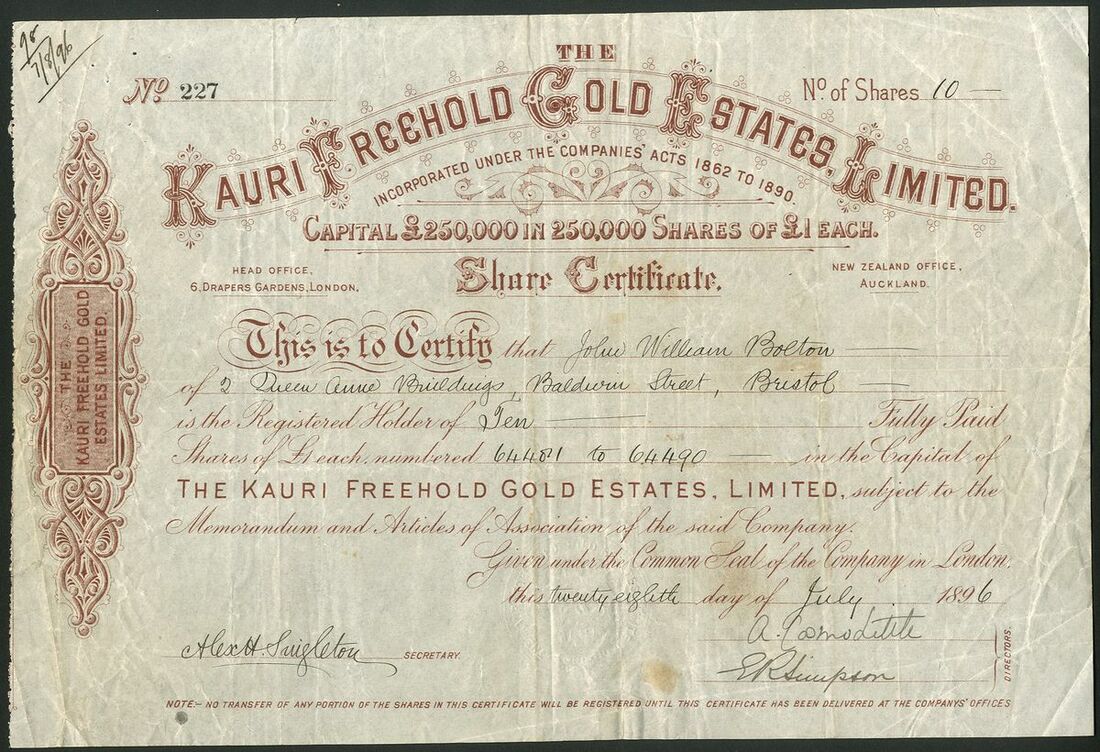 7/8/96
THE
No 227
No. of Shares 10 —
KAURI FREEHOLD GOLD ESTATES, LIMITED.
INCORPORATED UNDER THE COMPANIES' ACTS 1862 TO 1890.
CAPITAL £250,000 IN 250,000 SHARES OF £1 EACH.
HEAD OFFICE,
6, DRAPERS GARDENS, LONDON.
Share Certificate.
NEW ZEALAND OFFICE,
AUCKLAND.
THE
KAURI FREEHOLD GOLD
ESTATES LIMITED.
This is to Certify that John William Bolton
of 2 Queen Anne Buildings, Baldwin Street, Bristol
is the Registered Holder of Ten Fully Paid
Shares of £1 each, numbered 64481 to 64490 in the Capital of
THE KAURI FREEHOLD GOLD ESTATES, LIMITED, subject to the
Memorandum and Articles of Association of the said Company.
Given under the Common Seal of the Company in London,
this twenty eighth day of July 1896
Alex H. Singleton SECRETARY.
E R Simpson
DIRECTORS.
NOTE:- NO TRANSFER OF ANY PORTION OF THE SHARES IN THIS CERTIFICATE WILL BE REGISTERED UNTIL THIS CERTIFICATE HAS BEEN DELIVERED AT THE COMPANYS' OFFICES